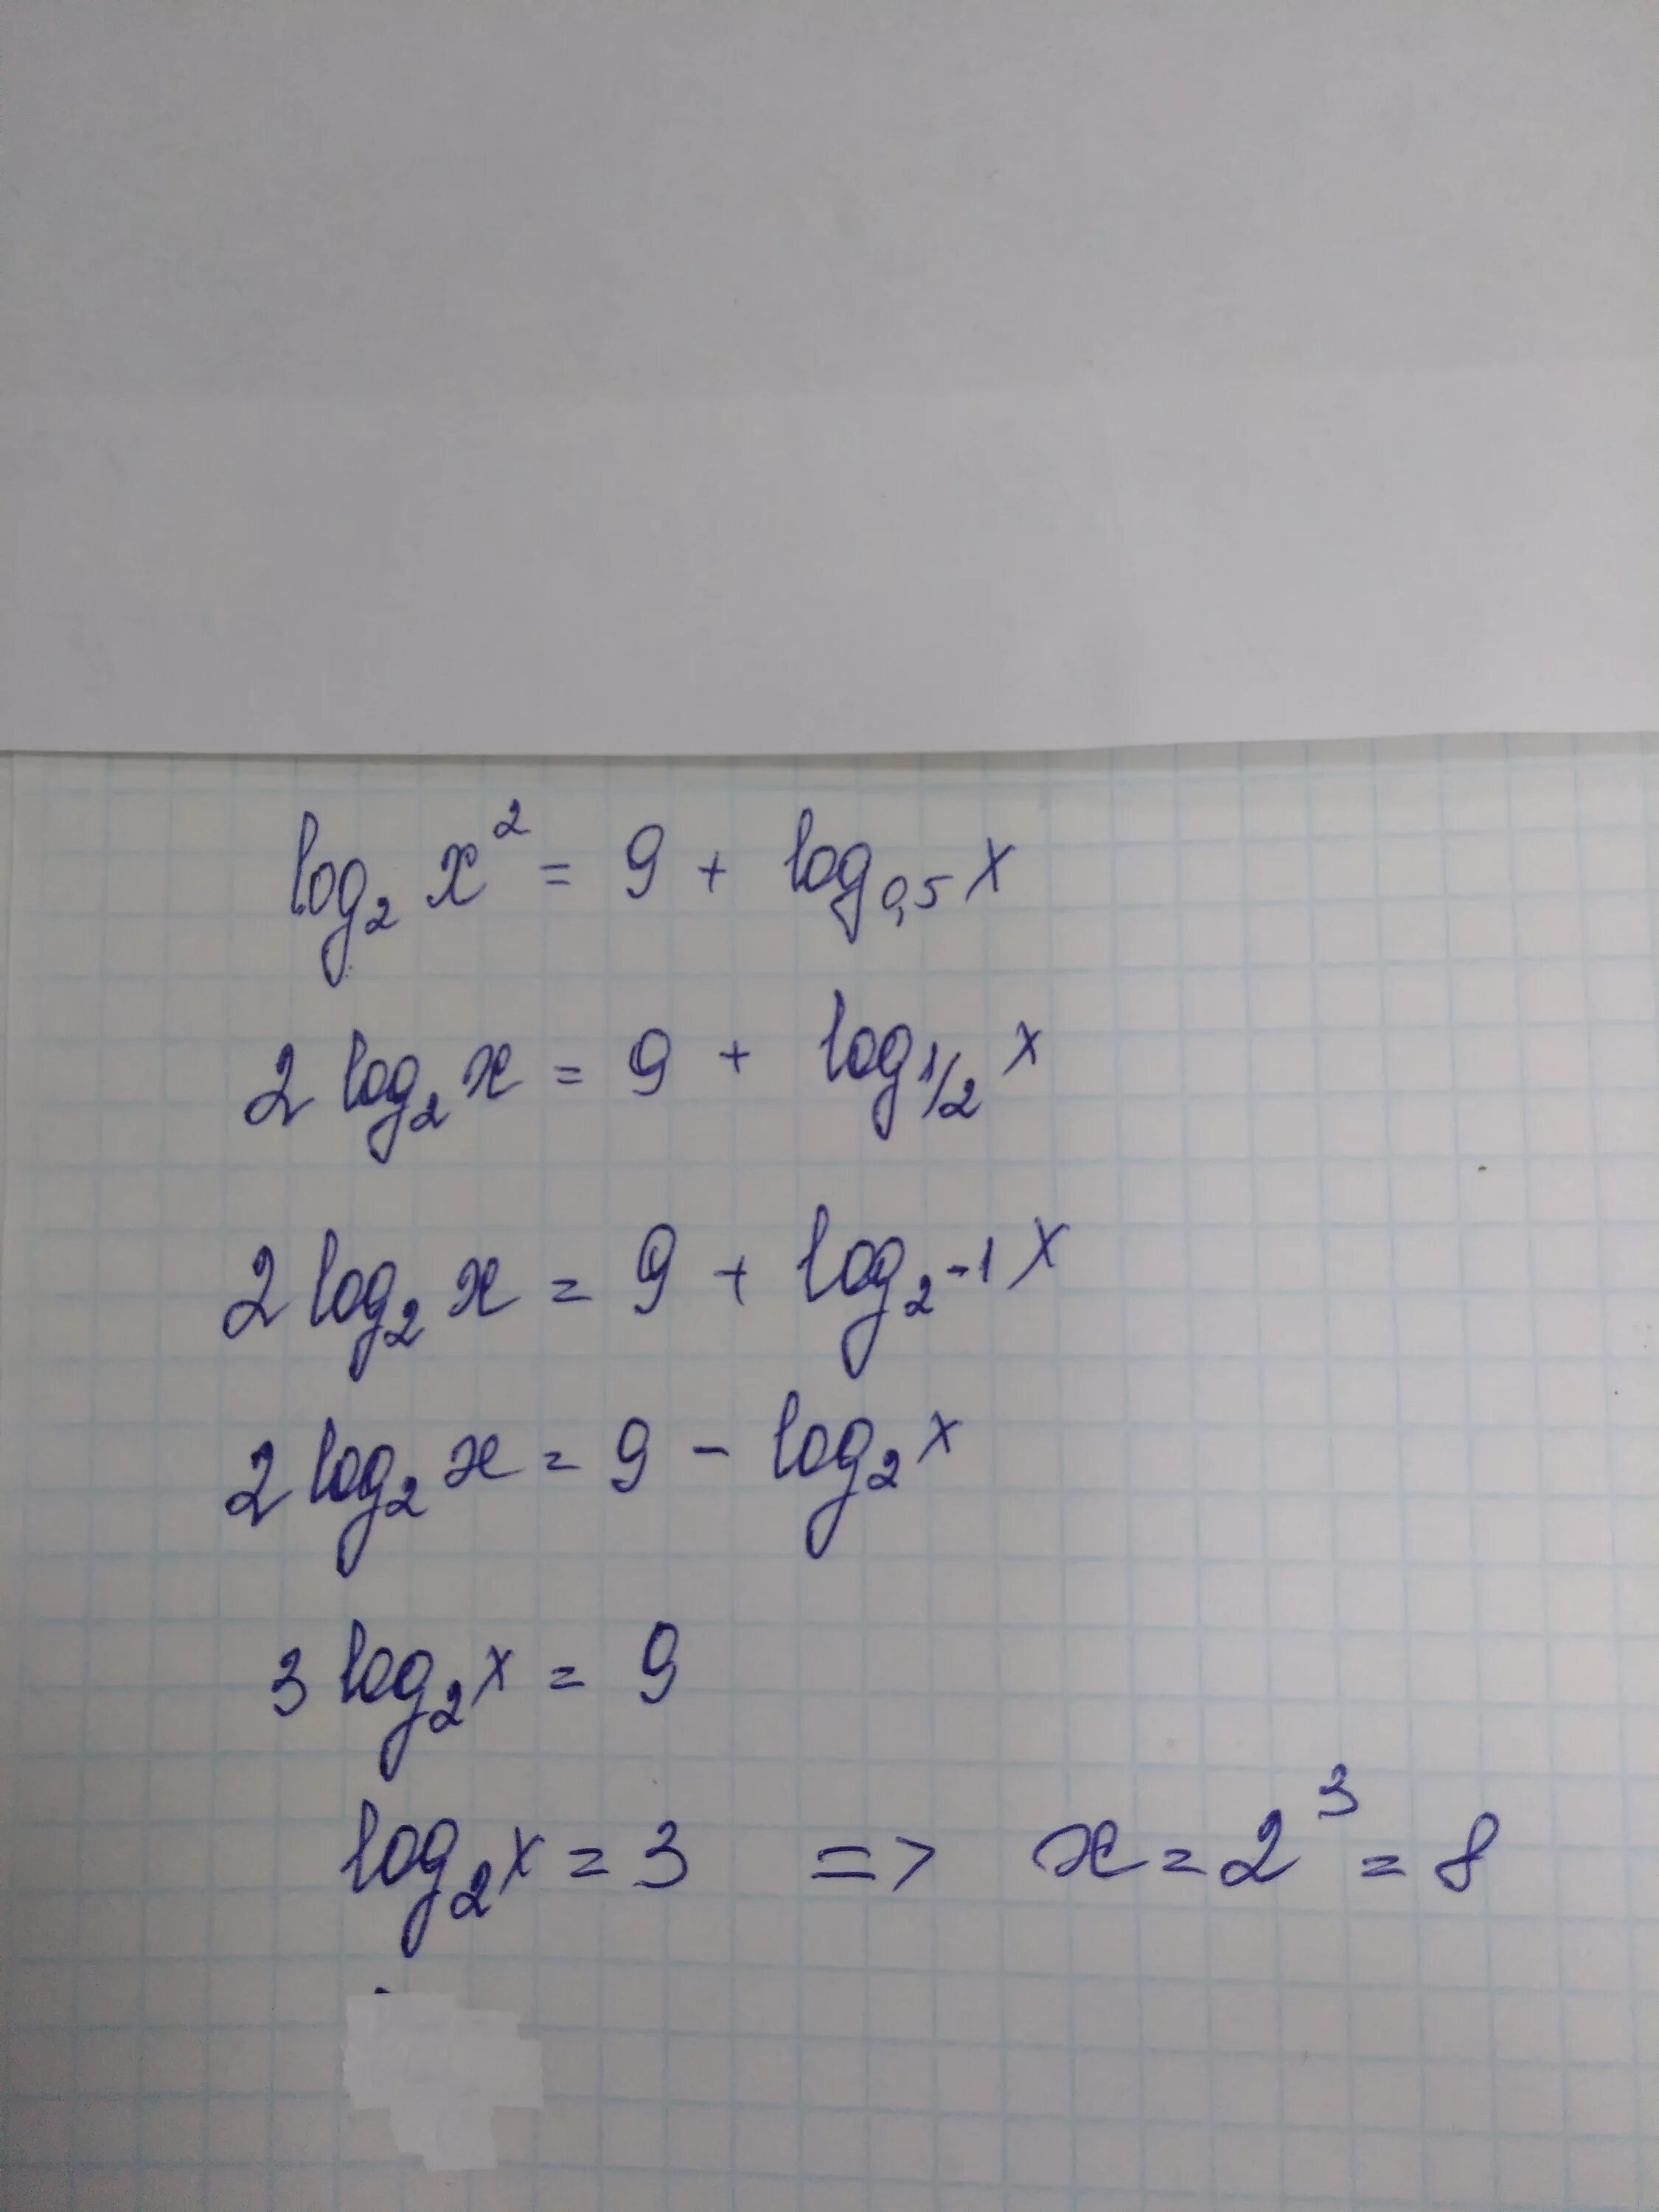 log₂ x² = 9 + log₀,₅ x
2 log₂ x = 9 + log₁/₂ x
2 log₂ x = 9 + log₂₋₁ x
2 log₂ x = 9 - log₂ x
3 log₂ x = 9
log₂ x = 3 => x = 2³ = 8